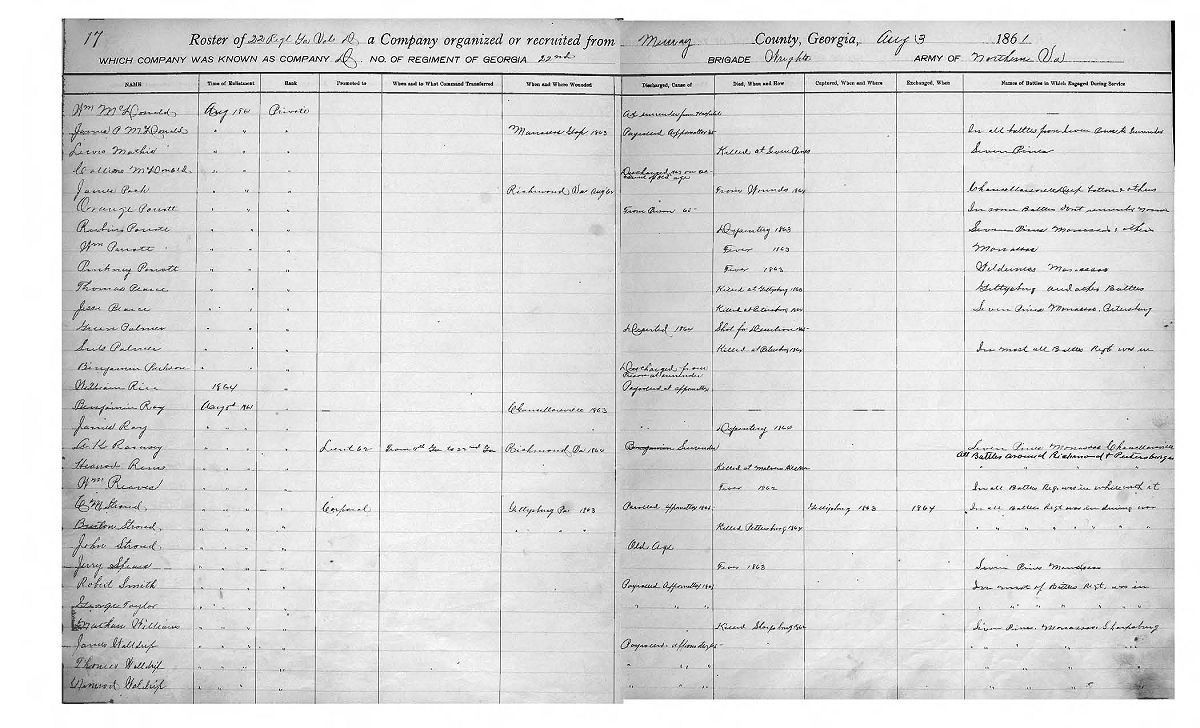 17
Roster of 22 Regt Ga Vols D a Company organized or recruited from Murray County, Georgia, Aug 3 1861
WHICH COMPANY WAS KNOWN AS COMPANY D. NO. OF REGIMENT OF GEORGIA 22nd BRIGADE Wrights ARMY OF Northern Va
NAME Time of Enlistment Rank Promoted to When and to What Command Transferred When and Where Wounded Discharged, Cause of Died, When and How Captured, When and Where Exchanged, When Names of Battles in Which Engaged During Service
Wm McDonald Aug 1861 Private At surrender from Hospital
James A McDonald " " " Manassas Gap 1863 Payroled Appomattox 65 In all battles from Seven Pines to Surrender
Lewis Mathis " " " Killed at Seven Pines Seven Pines
McDonald " " " Discharged on account of old age
James Pack " " " Richmond Va Aug 62 From Wounds Chancellorsville & others
Orange Parrott " " " From Prison 65 In some Battles Dont remember names
Rubin Parrott " " " Dysentery 1863 Seven Pines Manassas & others
Wm Parrott " " " Fever 1863 Manassas
Pinkney Parrott " " " Fever 1863 Wilderness Manassas
Thomas Pearce " " " Killed at Gettysburg 1863 Gettysburg and other Battles
Jesse Pearce " " " Killed at Petersburg 1864 Seven Pines Manassas, Petersburg
Green Palmer " " " Deserted 1864 Shot for Desertion
Palmer " " " Killed at Petersburg 1864 In most all Battles Regt was in
Benjamin " " " Discharged from Prison at surrender
William Rice 1864 " Payroled at appomattox
Benjamin Ray Aug 1861 " — Chancellorsville 1863 — —
James Ray " " " " Dysentery 1864
A K Ramsey " " " Lieut 62 From Ga to 22nd Ga Richmond Va 1864 Surrender Seven Pines Manassas Chancellorsville
All Battles around Richmond & Petersburg
" " " Killed at Malvern Hill " " " "
Wm Reaves " " " Fever 1862 In all Battles Regt was in while with it
C M Stroud " " " Corporal Gettysburg Pa 1863 Paroled Appomattox 1865 Gettysburg 1863 1864 In all Battles Regt was in during war
Burton Stroud " " " " " " " Killed Pettersburg 1864 " " " " " " "
John Stroud " " " Old Age
Jerry " " " Fever 1863 Seven Pines Manassas
Robert Smith " " " Payroled Appomattox 1865 In most of Battles Regt. was in
George Taylor " " " " " " " " " " " " "
Williams " " " Killed Sharpsburg Seven Pines Manassas Sharpsburg
James Waldrip " " " Payroled Appomattox " " " "
Thomas Waldrip " " " " " " " " " "
Waldrip " " " " " " " " " "